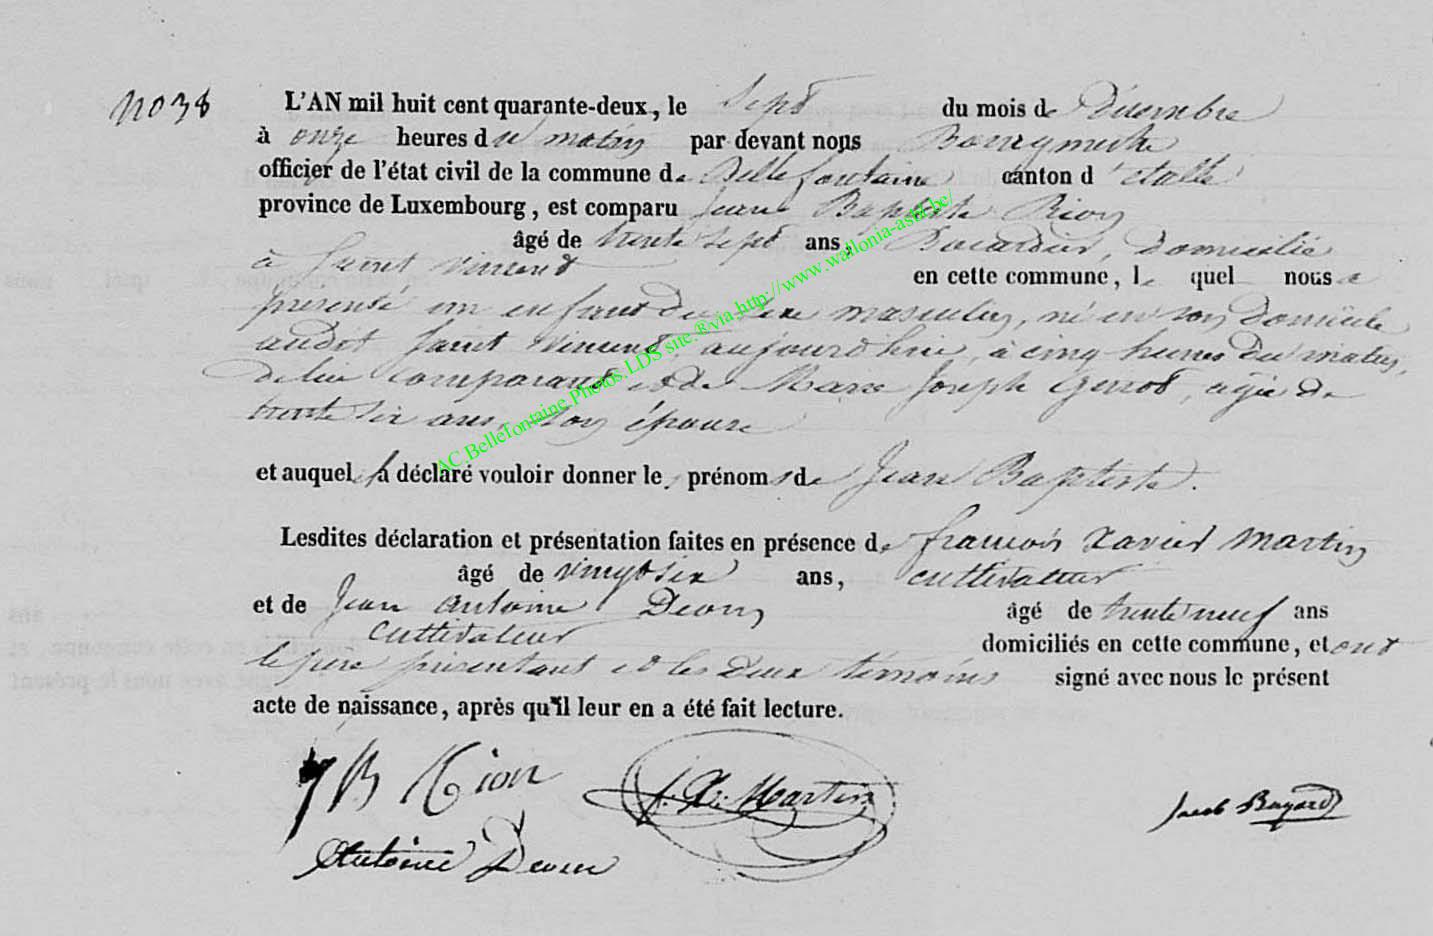 N° 38
L'AN mil huit cent quarante-deux, le sept du mois de Décembre
à onze heures du matin par devant nous Bourgmestre
officier de l'état civil de la commune de Bellefontaine canton d'étalle
province de Luxembourg, est comparu Jean Baptiste Rion
âgé de trente sept ans, domicilié
à Saint Vincent en cette commune, le quel nous a
présenté un enfant du sexe masculin, né en son domicile
audit Saint Vincent, aujourd'hui, à cinq heures du matin,
de lui comparant et de Marie Joseph agée de
trente six ans, son épouse
et auquel il a déclaré vouloir donner les prénoms de Jean Baptiste.
Lesdites déclaration et présentation faites en présence de françois Xavier Martin
âgé de vingt six ans, cultivateur
et de Jean Antoine Devon âgé de trente neuf ans
cultivateur domiciliés en cette commune, et ont
le père présentant et les deux témoins signé avec nous le présent
acte de naissance, après qu'il leur en a été fait lecture.
JB Rion f. X. Martin Jacob Bayard
Antoine Devon
AC.Bellefontaine.Photos.LDS site.®via http://www.wallonia-asbl.be/